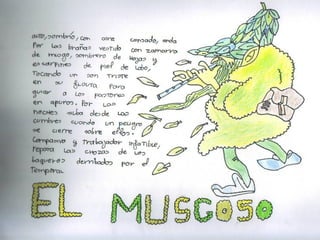 alto, sombrío, con aire cansado, anda
Por las brañas vestido con zamarra
de musgo, sombrero de hojas y
escarpines de piel de lobo,
Tocando un son triste
en su flauta para
guiar a los pastores
en apuros. Por las
noches silba desde las
cumbres cuando un peligro
se cierre sobre ellos.
Compasivo y Trabajador infatible,
repara las chozas de los
baqueros derribadas por el
Temporal.
EL MUSGOSO